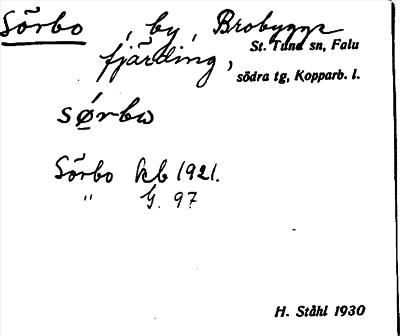 Sörbo, by, Brobygge
St. Tuna sn, Falu
fjärding,
södra tg, Kopparb. l.
sørbω
Sörbo kb 1921.
" G. 97
H. Ståhl 1930